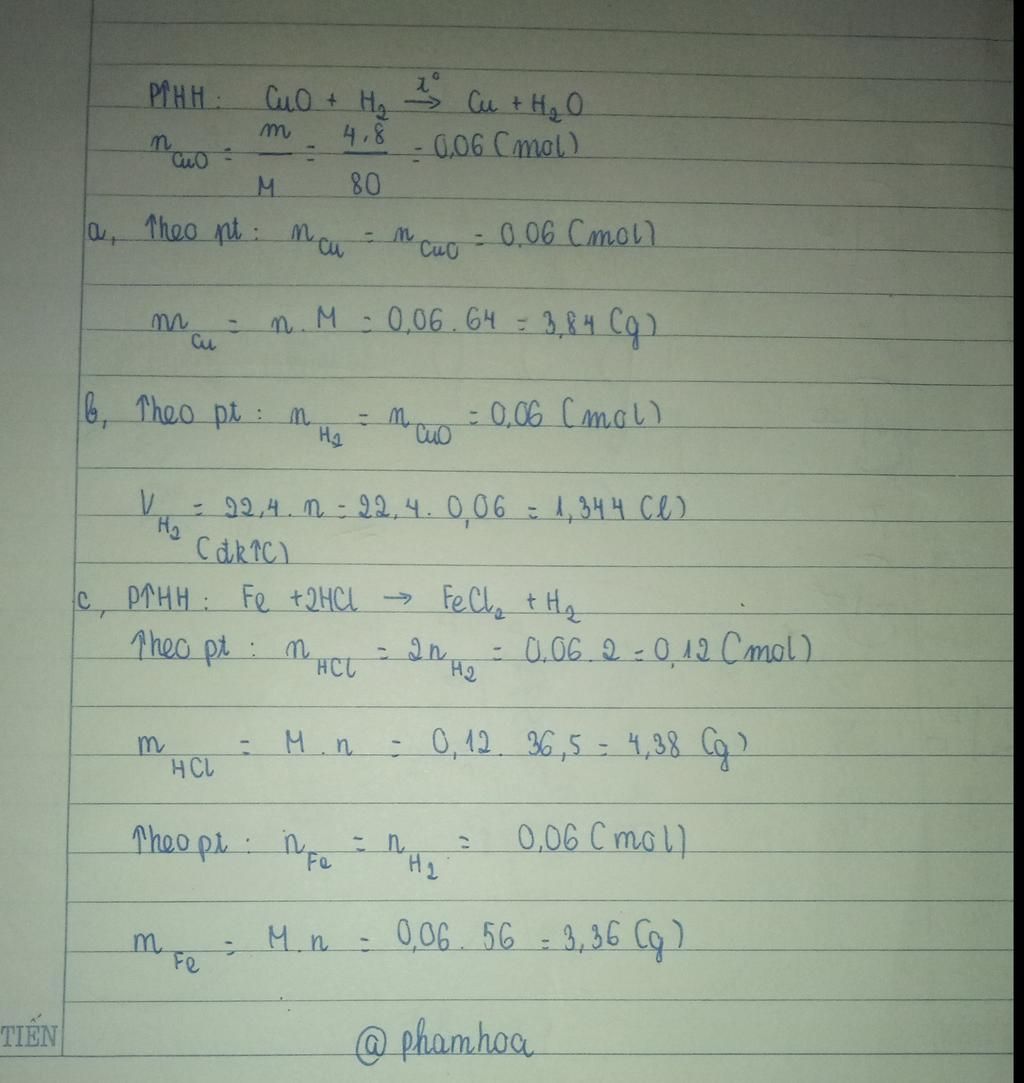 PTHH: CuO + H₂ →(t°) Cu + H₂O
n_CuO = m/M = 4.8/80 = 0,06 (mol)
a, Theo pt: n_Cu = n_CuO = 0,06 (mol)
m_Cu = n.M = 0,06.64 = 3,84 (g)
b, Theo pt: n_H₂ = n_CuO = 0,06 (mol)
V_H₂ = 22,4.n = 22,4.0,06 = 1,344 (l)
(đktc)
c, PTHH: Fe + 2HCl → FeCl₂ + H₂
Theo pt: n_HCl = 2n_H₂ = 0,06.2 = 0,12 (mol)
m_HCl = M.n = 0,12.36,5 = 4,38 (g)
Theo pt: n_Fe = n_H₂ = 0,06 (mol)
m_Fe = M.n = 0,06.56 = 3,36 (g)
TIẾN
@ phamhoa